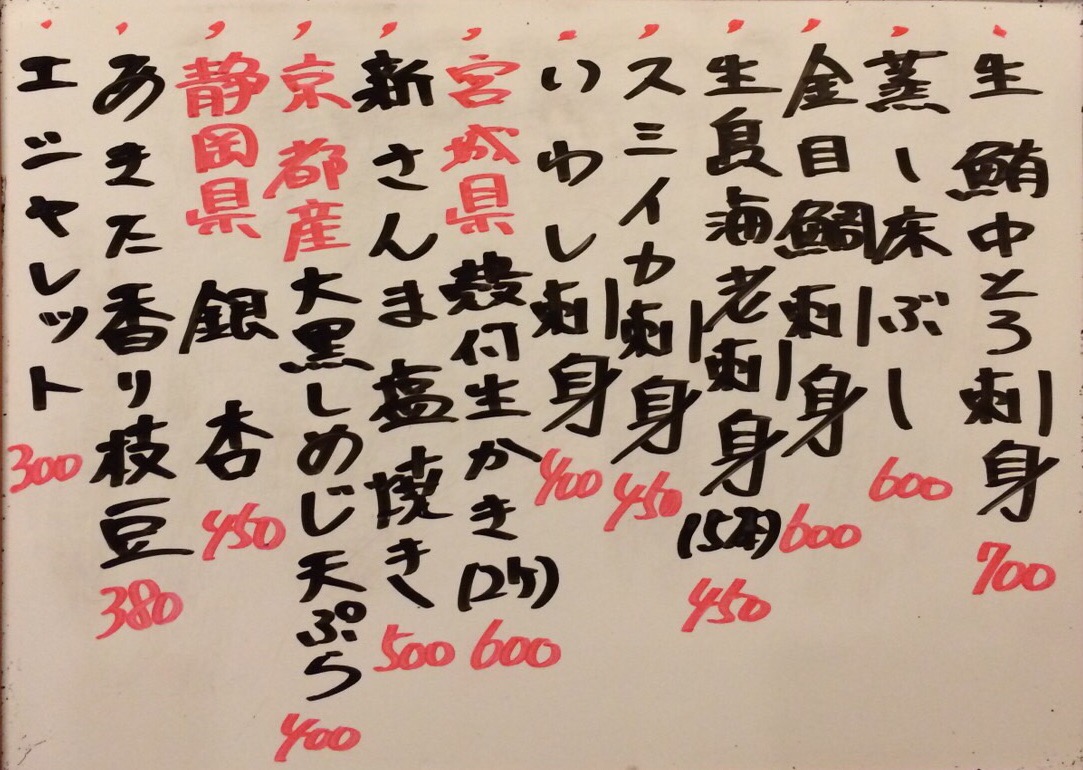 生鮪中とろ刺身 700
蒸し床ぶし 600
金目鯛刺身 600
生良海老刺身(5本) 450
スミイカ刺身 450
いわし刺身 400
宮城県 殻付生かき(2ケ) 600
新さんま塩焼き 500
京都産大黒しめじ天ぷら 400
静岡県 銀杏 450
あきた香り枝豆 380
エシャレット 300